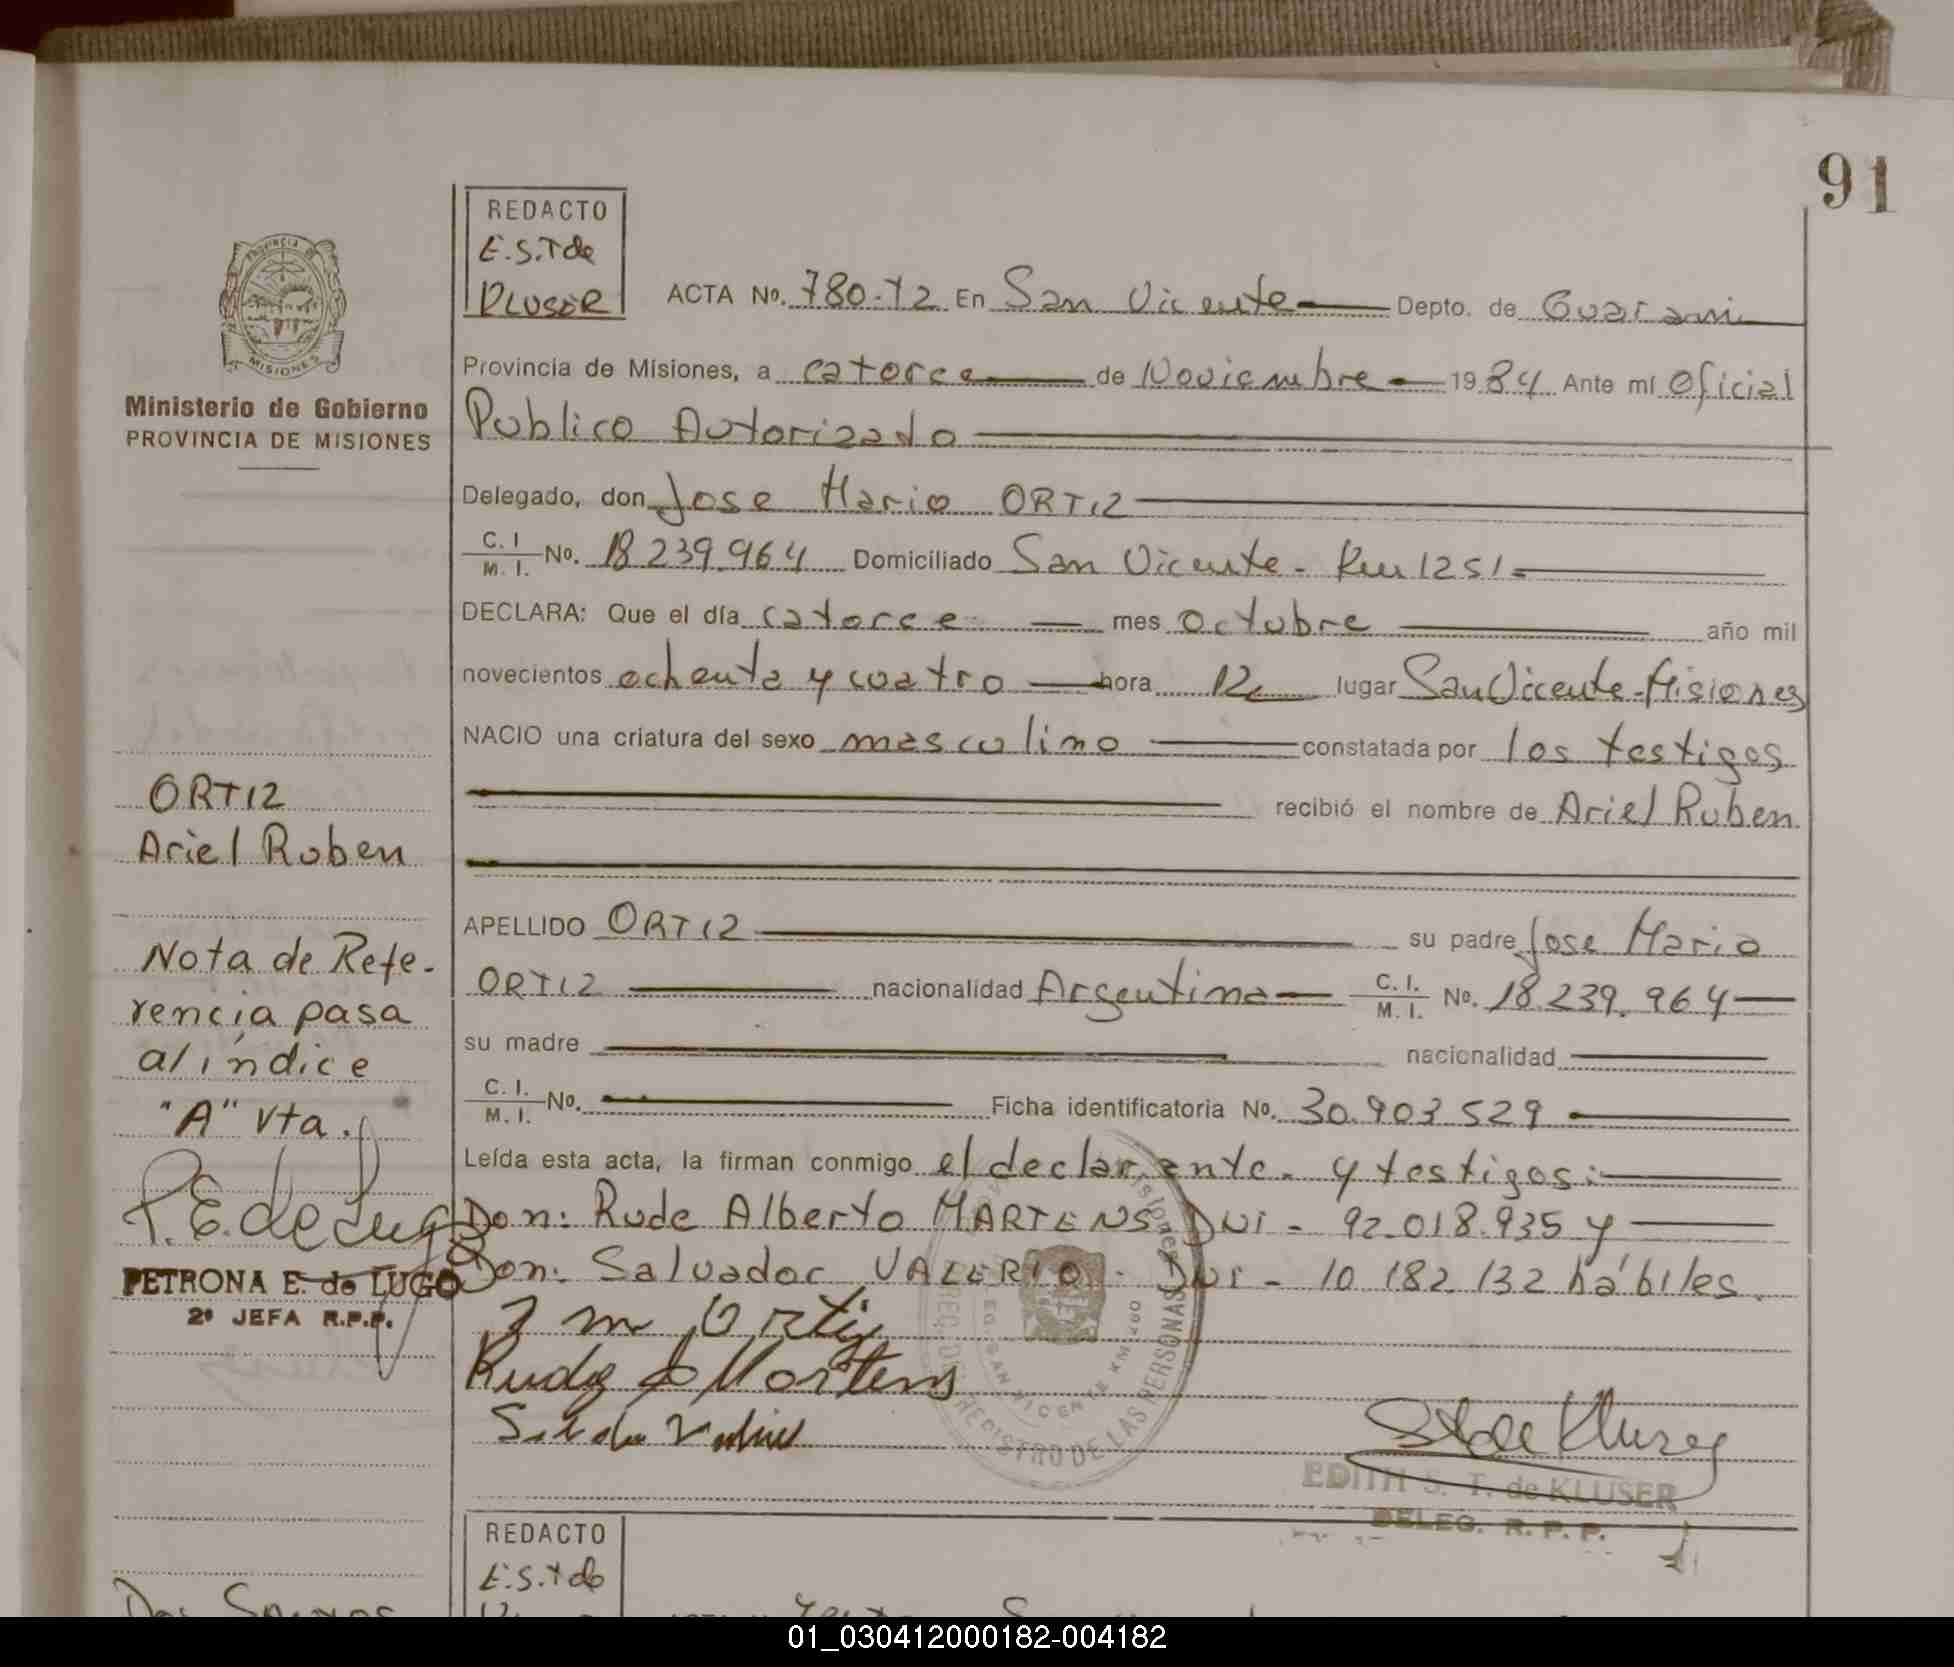 91
REDACTO
E.S.T de
KLUSER
PROVINCIA DE
MISIONES
Ministerio de Gobierno
PROVINCIA DE MISIONES
ACTA No. 780-T2 En San Vicente Depto. de Guarani
Provincia de Misiones, a catorce de Noviembre 1984 Ante mí Oficial
Publico Autorizado
Delegado, don Jose Mario ORTIZ
C. I / M. I. No. 18.239.964 Domiciliado San Vicente - Km 1251-
DECLARA: Que el día catorce mes octubre año mil
novecientos ochenta y cuatro hora 12 lugar San Vicente-Misiones
NACIO una criatura del sexo masculino constatada por los testigos
recibió el nombre de Ariel Ruben
APELLIDO ORTIZ su padre Jose Mario
ORTIZ nacionalidad Argentina C. I. / M. I. No. 18.239.964
su madre nacionalidad
C. I. / M. I. No. Ficha identificatoria No. 30.903.529
Leída esta acta, la firman conmigo el declarante - y testigos:
Don: Rude Alberto MARTENS DNI - 92.018.935 y
Don: Salvador VALERIO - DNI - 10.182.132 hábiles.
J m Ortiz
Rudy A Martens
ORTIZ
Ariel Ruben
Nota de Refe-
rencia pasa
al índice
"A" Vta.
P.E. de Lugo
PETRONA E. de LUGO
2ª JEFA R.P.P.
REGISTRO DE LAS PERSONAS
SAN VICENTE KM 1260
Misiones
EDITH S. T. de KLUSER
DELEG. R. P. P.
REDACTO
E.S.T de
01_030412000182-004182